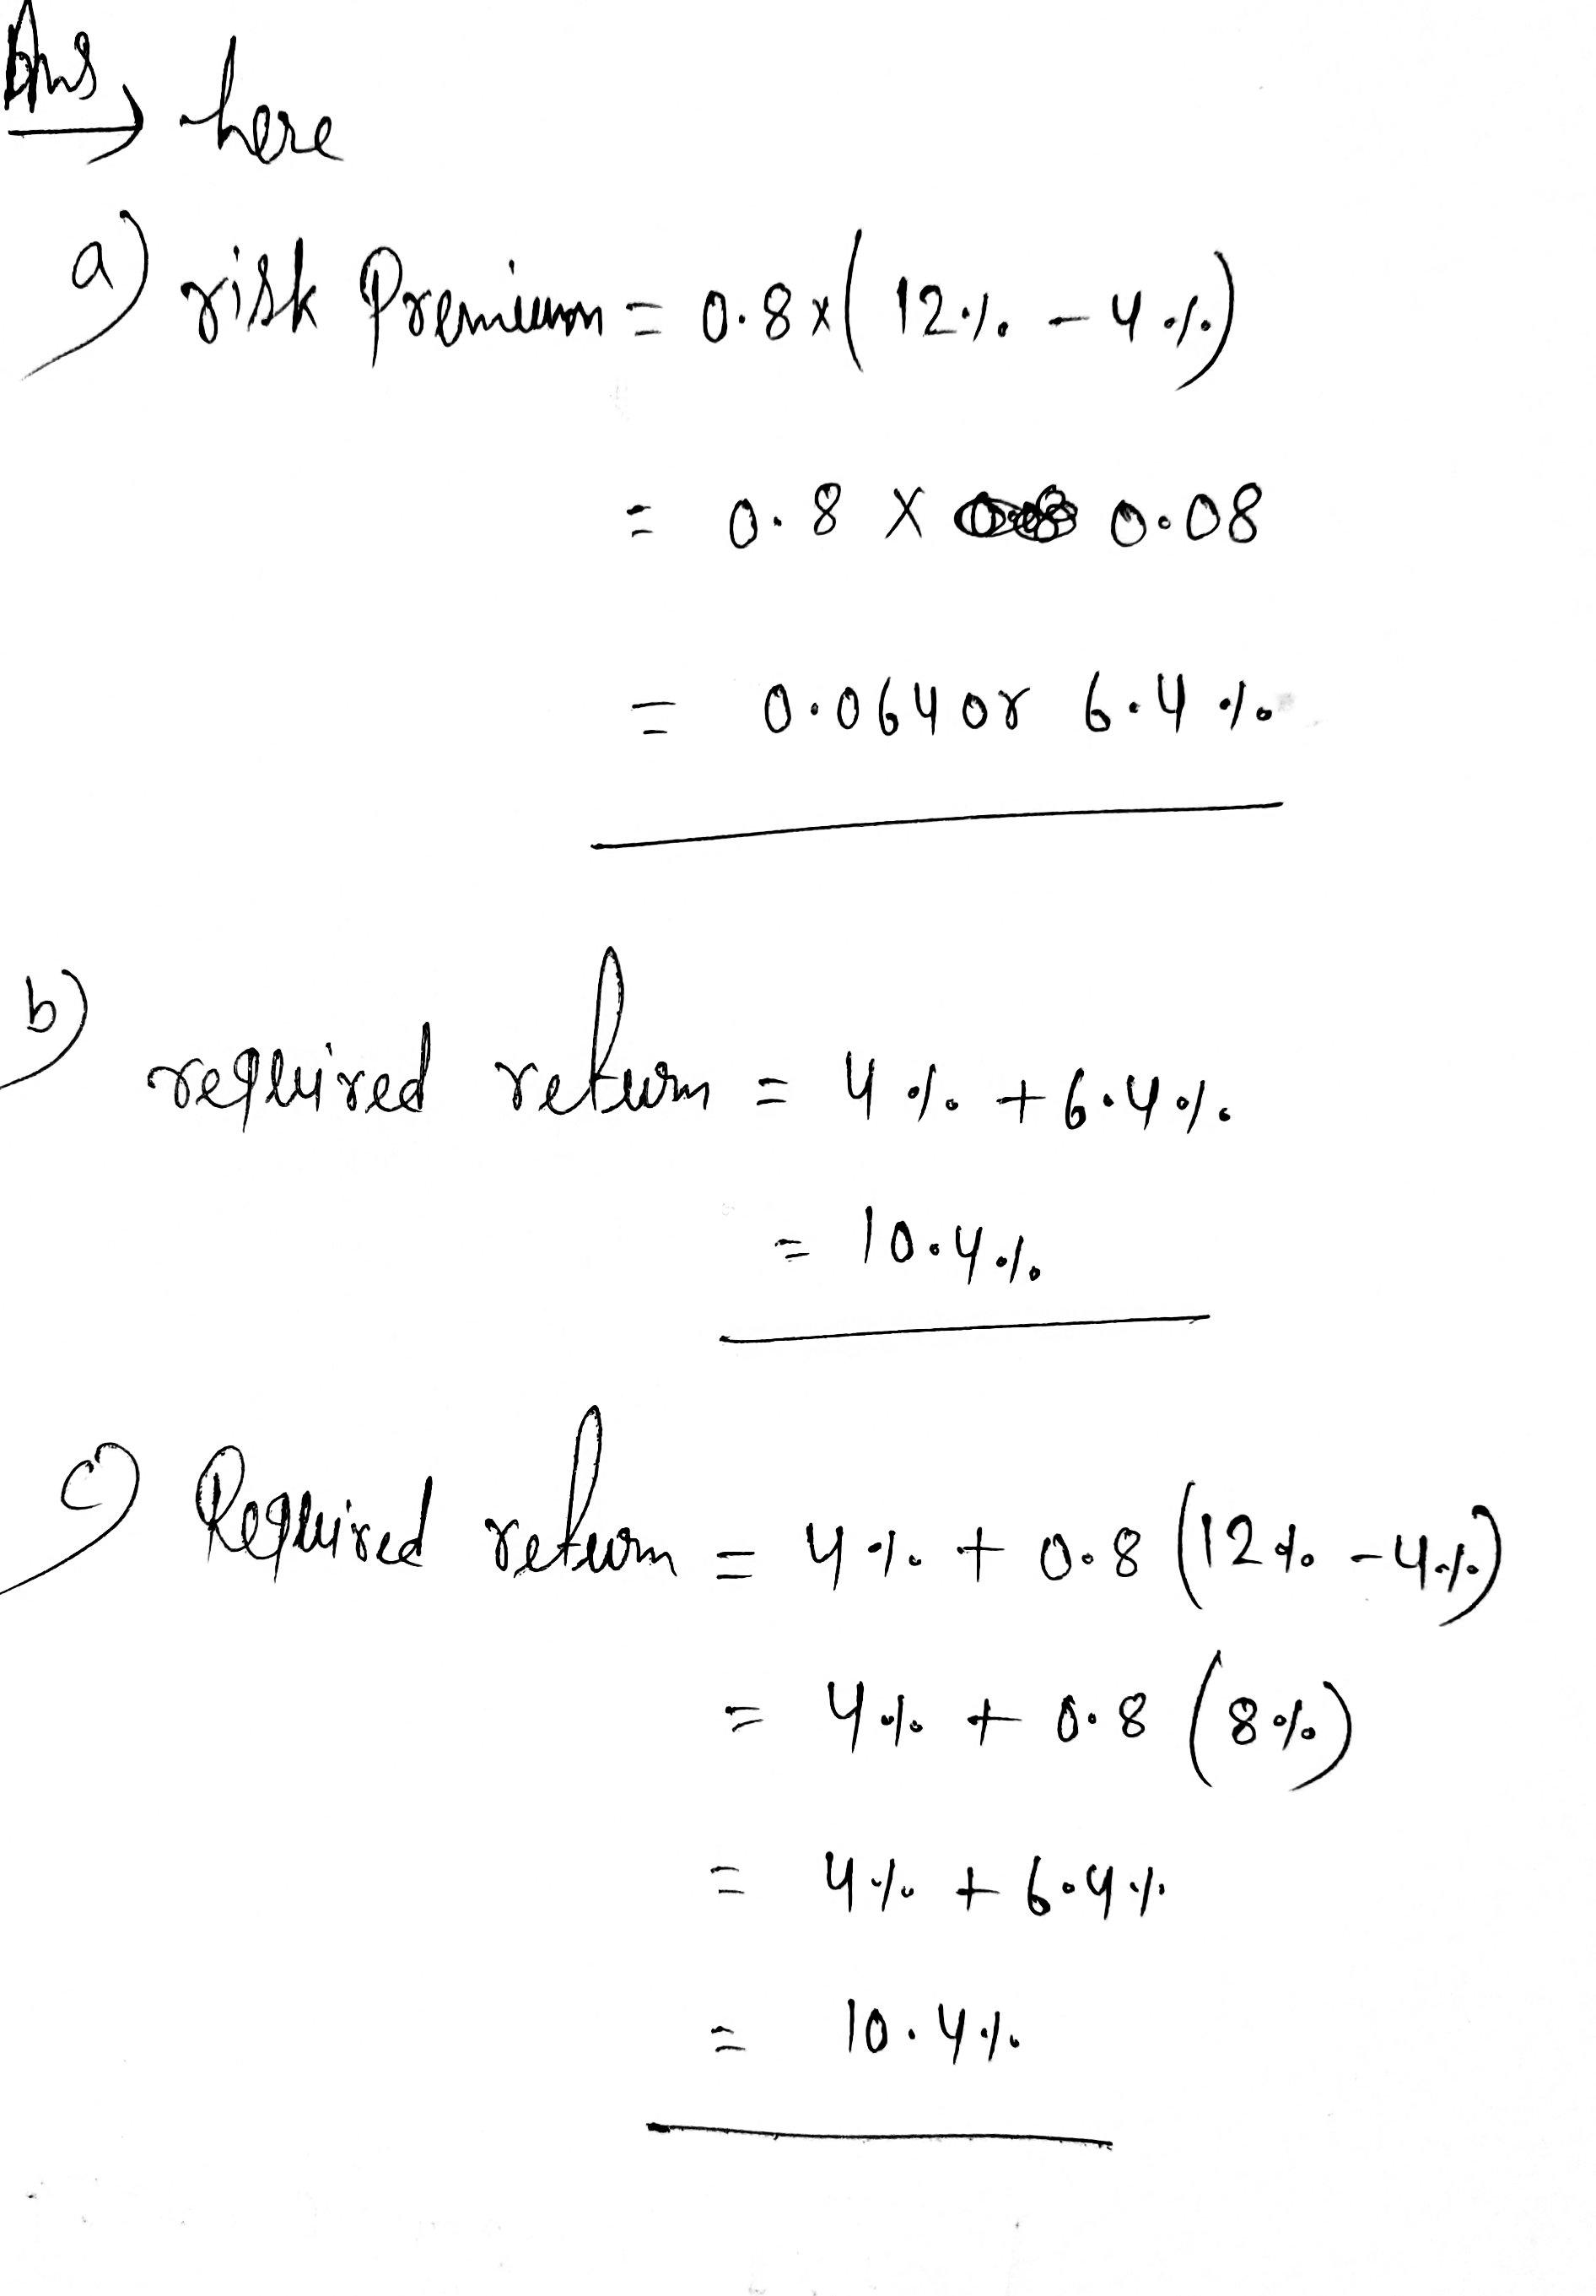 Ans → here
a) risk Premium = 0.8 x ( 12% - 4%)
= 0.8 X 0.08
= 0.064 or 6.4%
b) required return = 4% + 6.4%
= 10.4%
c) Required return = 4% + 0.8 (12% - 4%)
= 4% + 0.8 (8%)
= 4% + 6.4%
= 10.4%